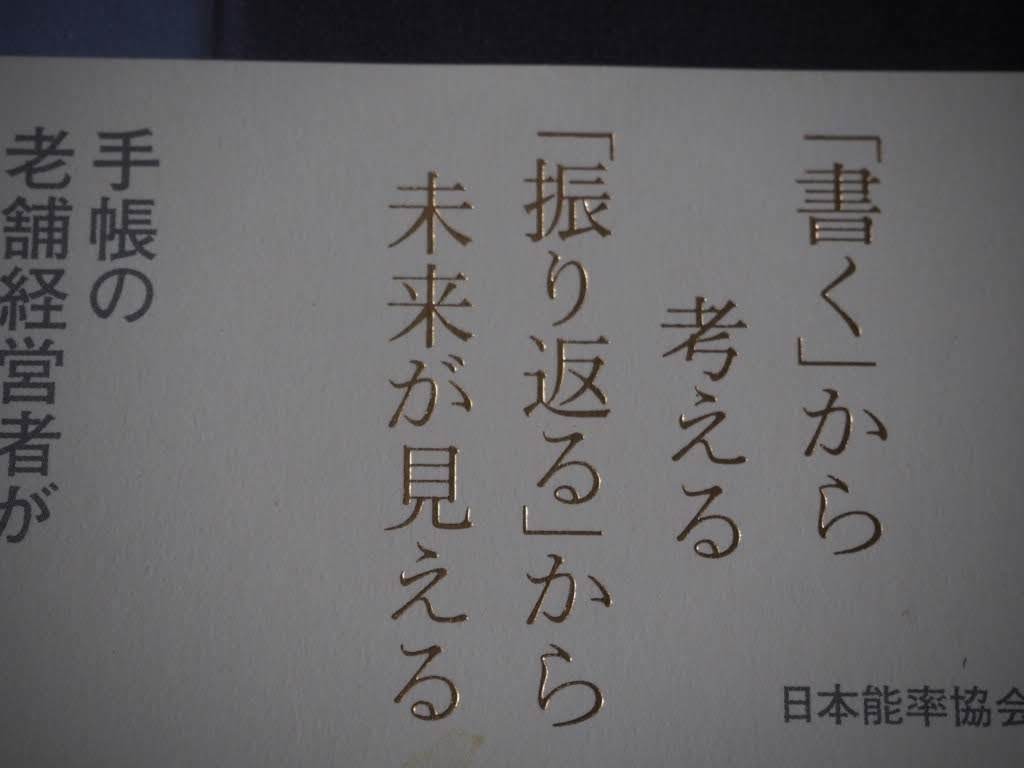 「書く」から
考える
「振り返る」から
未来が見える
手帳の
老舗経営者が
日本能率協会